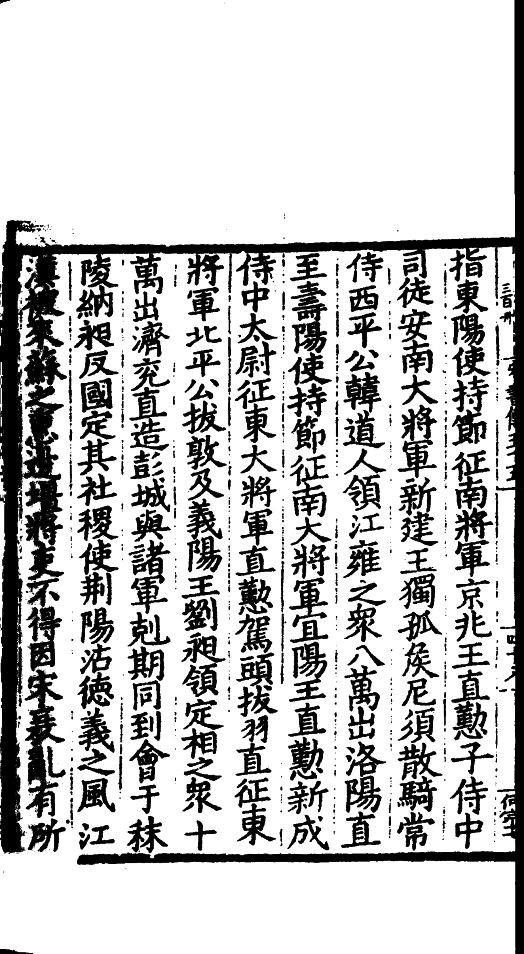 指東陽使持節征南將軍京兆王直懃子侍中
司徒安南大將軍新建王獨孤侯尼須散騎常
侍西平公韓道人領江雍之衆八萬出洛陽直
至壽陽使持節征南大將軍宜陽王直懃新成
侍中太尉征東大將軍直懃駕頭拔羽直征東
將軍北平公拔敦及義陽王劉昶領定相之衆十
萬出濟兖直造彭城與諸軍剋期同到會于秣
陵納昶反國定其社稷使荆陽沾德義之風江
漢被來蘇之惠邊壃將吏不得因宋衰亂有所